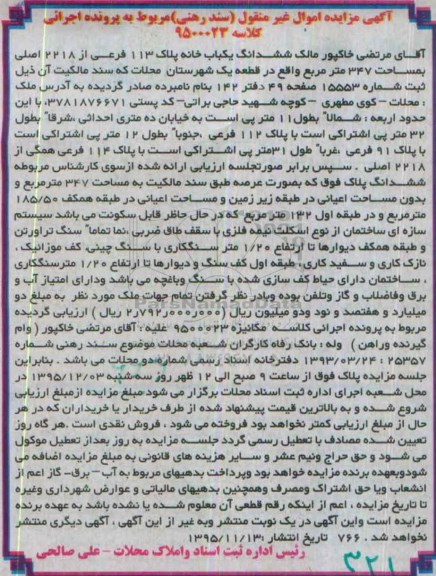 آگهی مزایده اموال غیر منقول (سند رهنی)مربوط به پرونده اجرائی
کلاسه ۹۵۰۰۰۲۳
آقـــای مرتضی خاکپور مالک ششـــدانگ یکباب خانه پلاک ۱۱۳ فرعـــی از ۲۲۱۸ اصلی
بمساحت ۳۴۷ متر مربع واقع در قطعه یک شهرستان محلات که سند مالکیت آن ذیل
ثبت شماره ۱۵۵۵۳ صفحه ۴۹ دفتر ۱۴۲ بنام نامبرده صادر گردیده به آدرس ملک
: محلات – کوی مطهری – کوچه شـهید حاجی براتی– کد پستی ۳۷۸۱۸۷۶۶۷۱، با این
حدود اربعه : شـمالا" بطول۱۱ متر پی اسـت به خیابان ده متری احداثی ،شـرقا" بطول
۳۲ متر پی اشتراکی است با پلاک ۱۱۲ فرعی ،جنوبا" بطول ۱۲ متر پی اشتراکی است
با پلاک ۹۱ فرعی ،غربا" طول ۳۱متر پی اشــتراکی اســت با پلاک ۱۱۴ فرعی همگی از
۲۲۱۸ اصلی . سـپس برابر صورتجلسه ارزیابی ارائه شده ازسوی کارشناس مربوطه
ششـدانگ پلاک فوق که بصورت عرصه طبق سند مالکیت به مساحت ۳۴۷ مترمربع و
بدون مساحت اعیانی در طبقه زیر زمین و مساحت اعیانی در طبقه همکف ۱۸۵/۵۰
مترمربع و در طبقه اول ۱۳۲ متر مربع که در حال حاظر قابل سکونت می باشد سیستم
سازه ای ساختمان از نوع اسکلت نیمه فلزی با سقف طاق ضربی ،نما تماما" سنگ تراورتن
و طبقه همکف دیوارها تا ارتفاع ۱/۲۰ متر سنگکاری با سـنگ چینی، کف موزائیک ،
نازک کاری و سـفید کاری، طبقه اول کف سنگ و دیوارها تا ارتفاع ۱/۲۰ مترسنگکاری
، ساختمان دارای حیاط کف سازی شده با سنگ وباغچه می باشد ودارای امتیاز آب و
برق وفاضلاب و گاز وتلفن بوده وبادر نظر گرفتن تمام جهات ملک مورد نظر به مبلغ دو
میلیارد و هفتصد و نود ودو میلیون ریال (۲٫۷۹۲٫۰۰۰٫۰۰۰ ریال ) ارزیابی گردیده
مربوط به پرونده اجرائی کلاسه مکانیزه ۹۵۰۰۰۲۳ علیه : آقای مرتضی خاکپور ( وام
گیرنده وراهن ) وله : بانک رفاه کارگران شعبه محلات موضوع سند رهنی شماره
۲۵۳۵۷ : ۱۳۹۳/۰۳/۲۴ دفترخانه اسناد رسمی شماره دو محلات می باشد . بنابراین
جلسه مزایده پلاک فوق از ساعت ۹ صبح الی ۱۲ ظهر روز سه شنبه ۱۳۹۵/۱۲/۰۳ در
محل شـعبه اجرای اداره ثبت اسناد محلات برگزار می شود،مبلغ مزایده ازمبلغ ارزیابی
شروع شده و به بالاترین قیمت پیشنهاد شده از طرف خریدار یا خریداران که در هر
حال از مبلغ ارزیابی کمتر نخواهد بود فروخته می شود ، فروش نقدی است .هر گاه روز
تعیین شده مصادف با تعطیل رسمی گردد جلسـه مزایده به روز بعداز تعطیل موکول
می شود و حق حراج ونیم عشر و سـایر هزینه های قانونی به مبلغ مزایده اضافه می
شودوبعهده برنده مزایده خواهد بود وپرداخت بدهیهای مربوط به آب – برق– گاز اعم از
انشعاب ویا حق اشتراک ومصرف وهمچنین بدهیهای مالیاتی و عوارض شهرداری وغیره
تا تاریخ مزایده ، اعم از اینکه رقم قطعی آن معلوم شـده یا نشده باشد به عهده برنده
مزایده است واین آگهی در یک نوبت منتشر وبه غیر از این آگهی ، آگهی دیگری منتشر
نخواهد شد . ۷۶۶ تاریخ انتشار :۱۳۹۵/۱۱/۱۳
رئیس اداره ثبت اسناد واملاک محلات – علی صالحی
۳۲۱